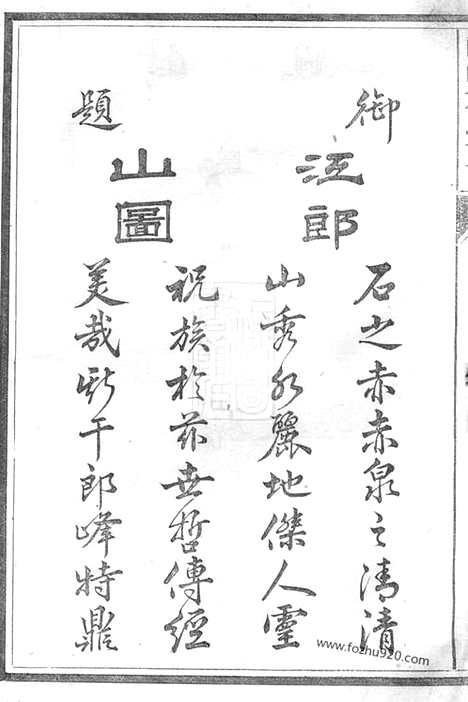 御題
江郎山圖
石之赤赤泉之清清
山秀水麗地傑人靈
祝族於茲世哲傳經
美哉斯干郎峰特鼎
www.fozhu920.com